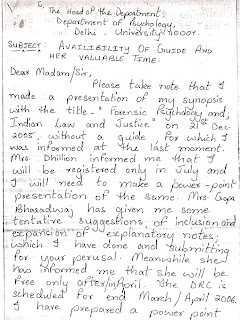 To, The Head of the Department,
Department of Psychology,
Delhi University, 110007.
SUBJECT: AVAILIBILITY OF GUIDE AND
HER VALUABLE TIME.
Dear Madam/Sir,
Please take note that I
made a presentation of my synopsis
with the title - "Forensic Psychology and
Indian Law and Justice" on 21st Dec
2005, without a guide for which I
was informed at the last moment.
Mrs. Dhillion informed me that I
will be registered only in July and
I will need to make a power-point
presentation of the same. Mrs Gopa
Bharadwaj has given me some
tentative suggestions of inclusion and
expansion of explanatory notes,
which I have done and submitting
for your perusal. Meanwhile she
has informed me that she will be
free only after/in April. The DRC is
scheduled for end March / April 2006.
I have prepared a power point